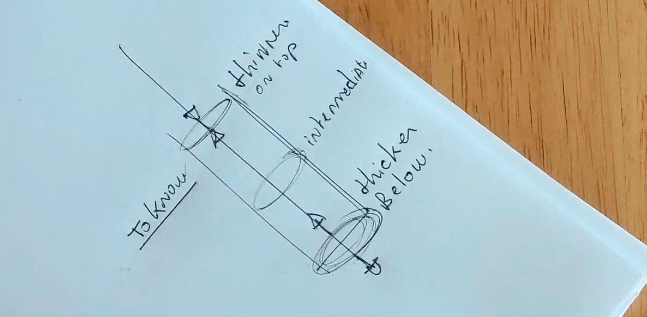 thinner
on top
intermediate
thicker
Below.
To know